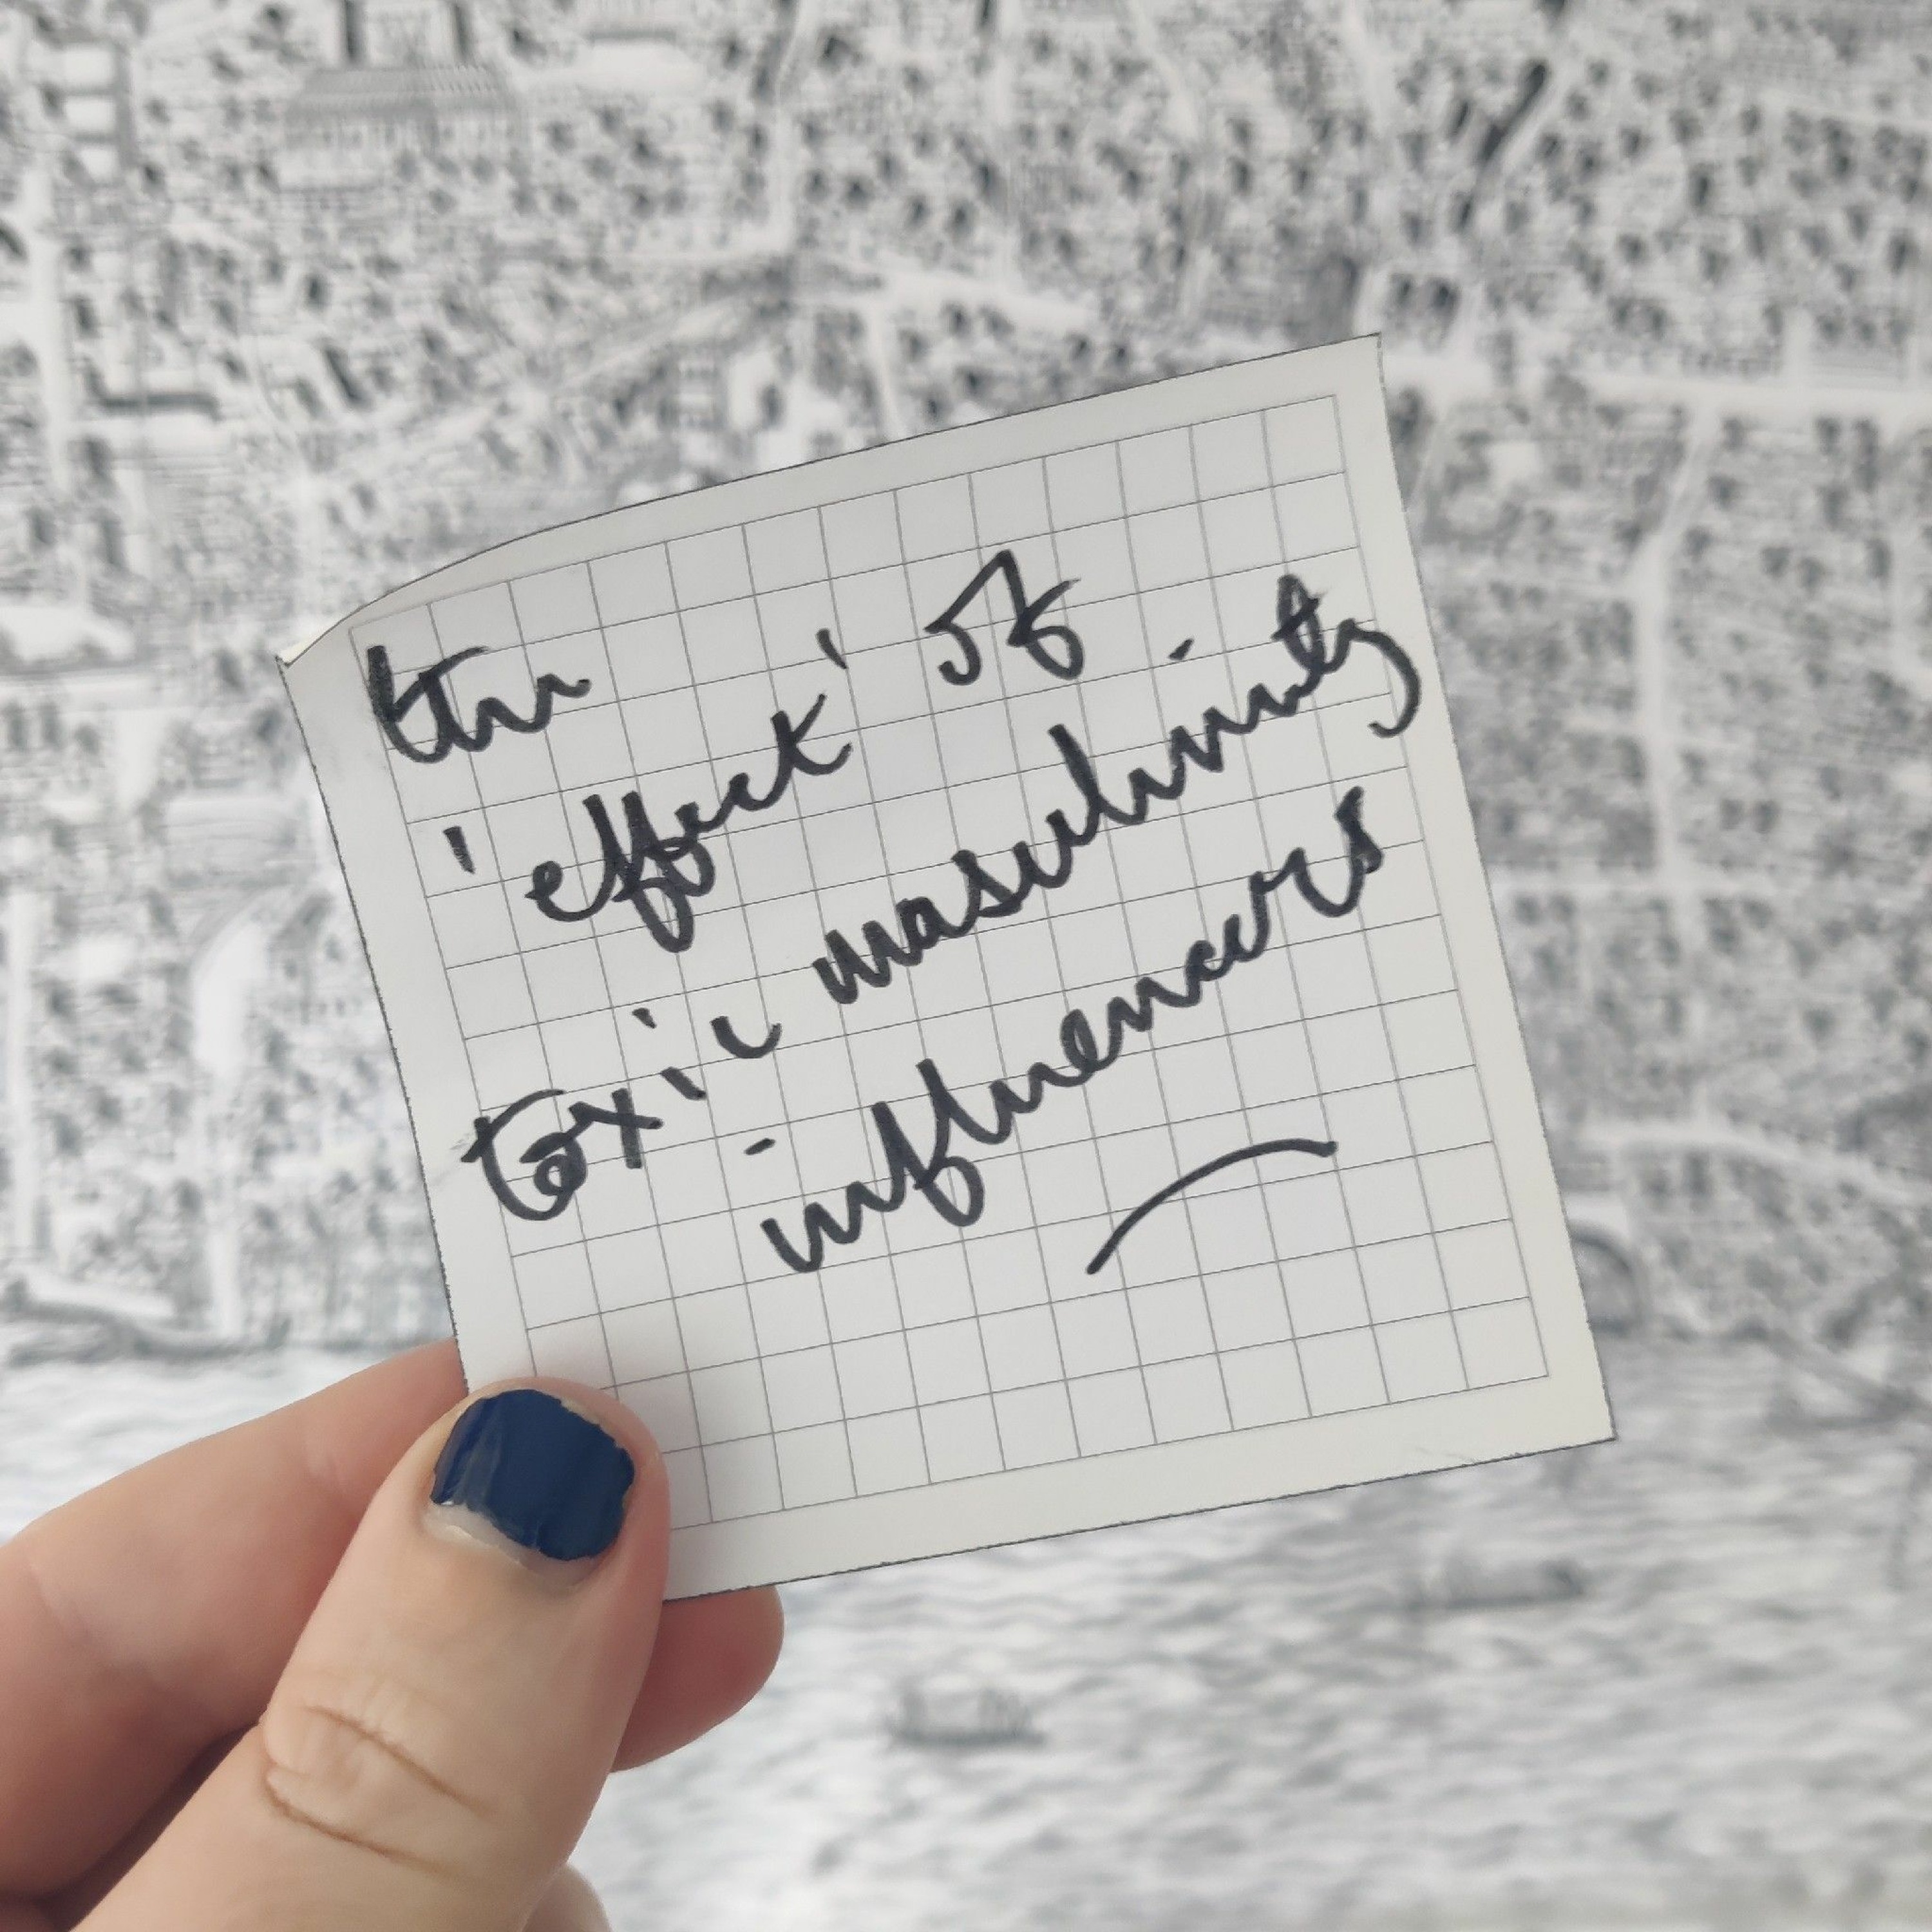 the
'effect' of
toxic masculinity
influencers